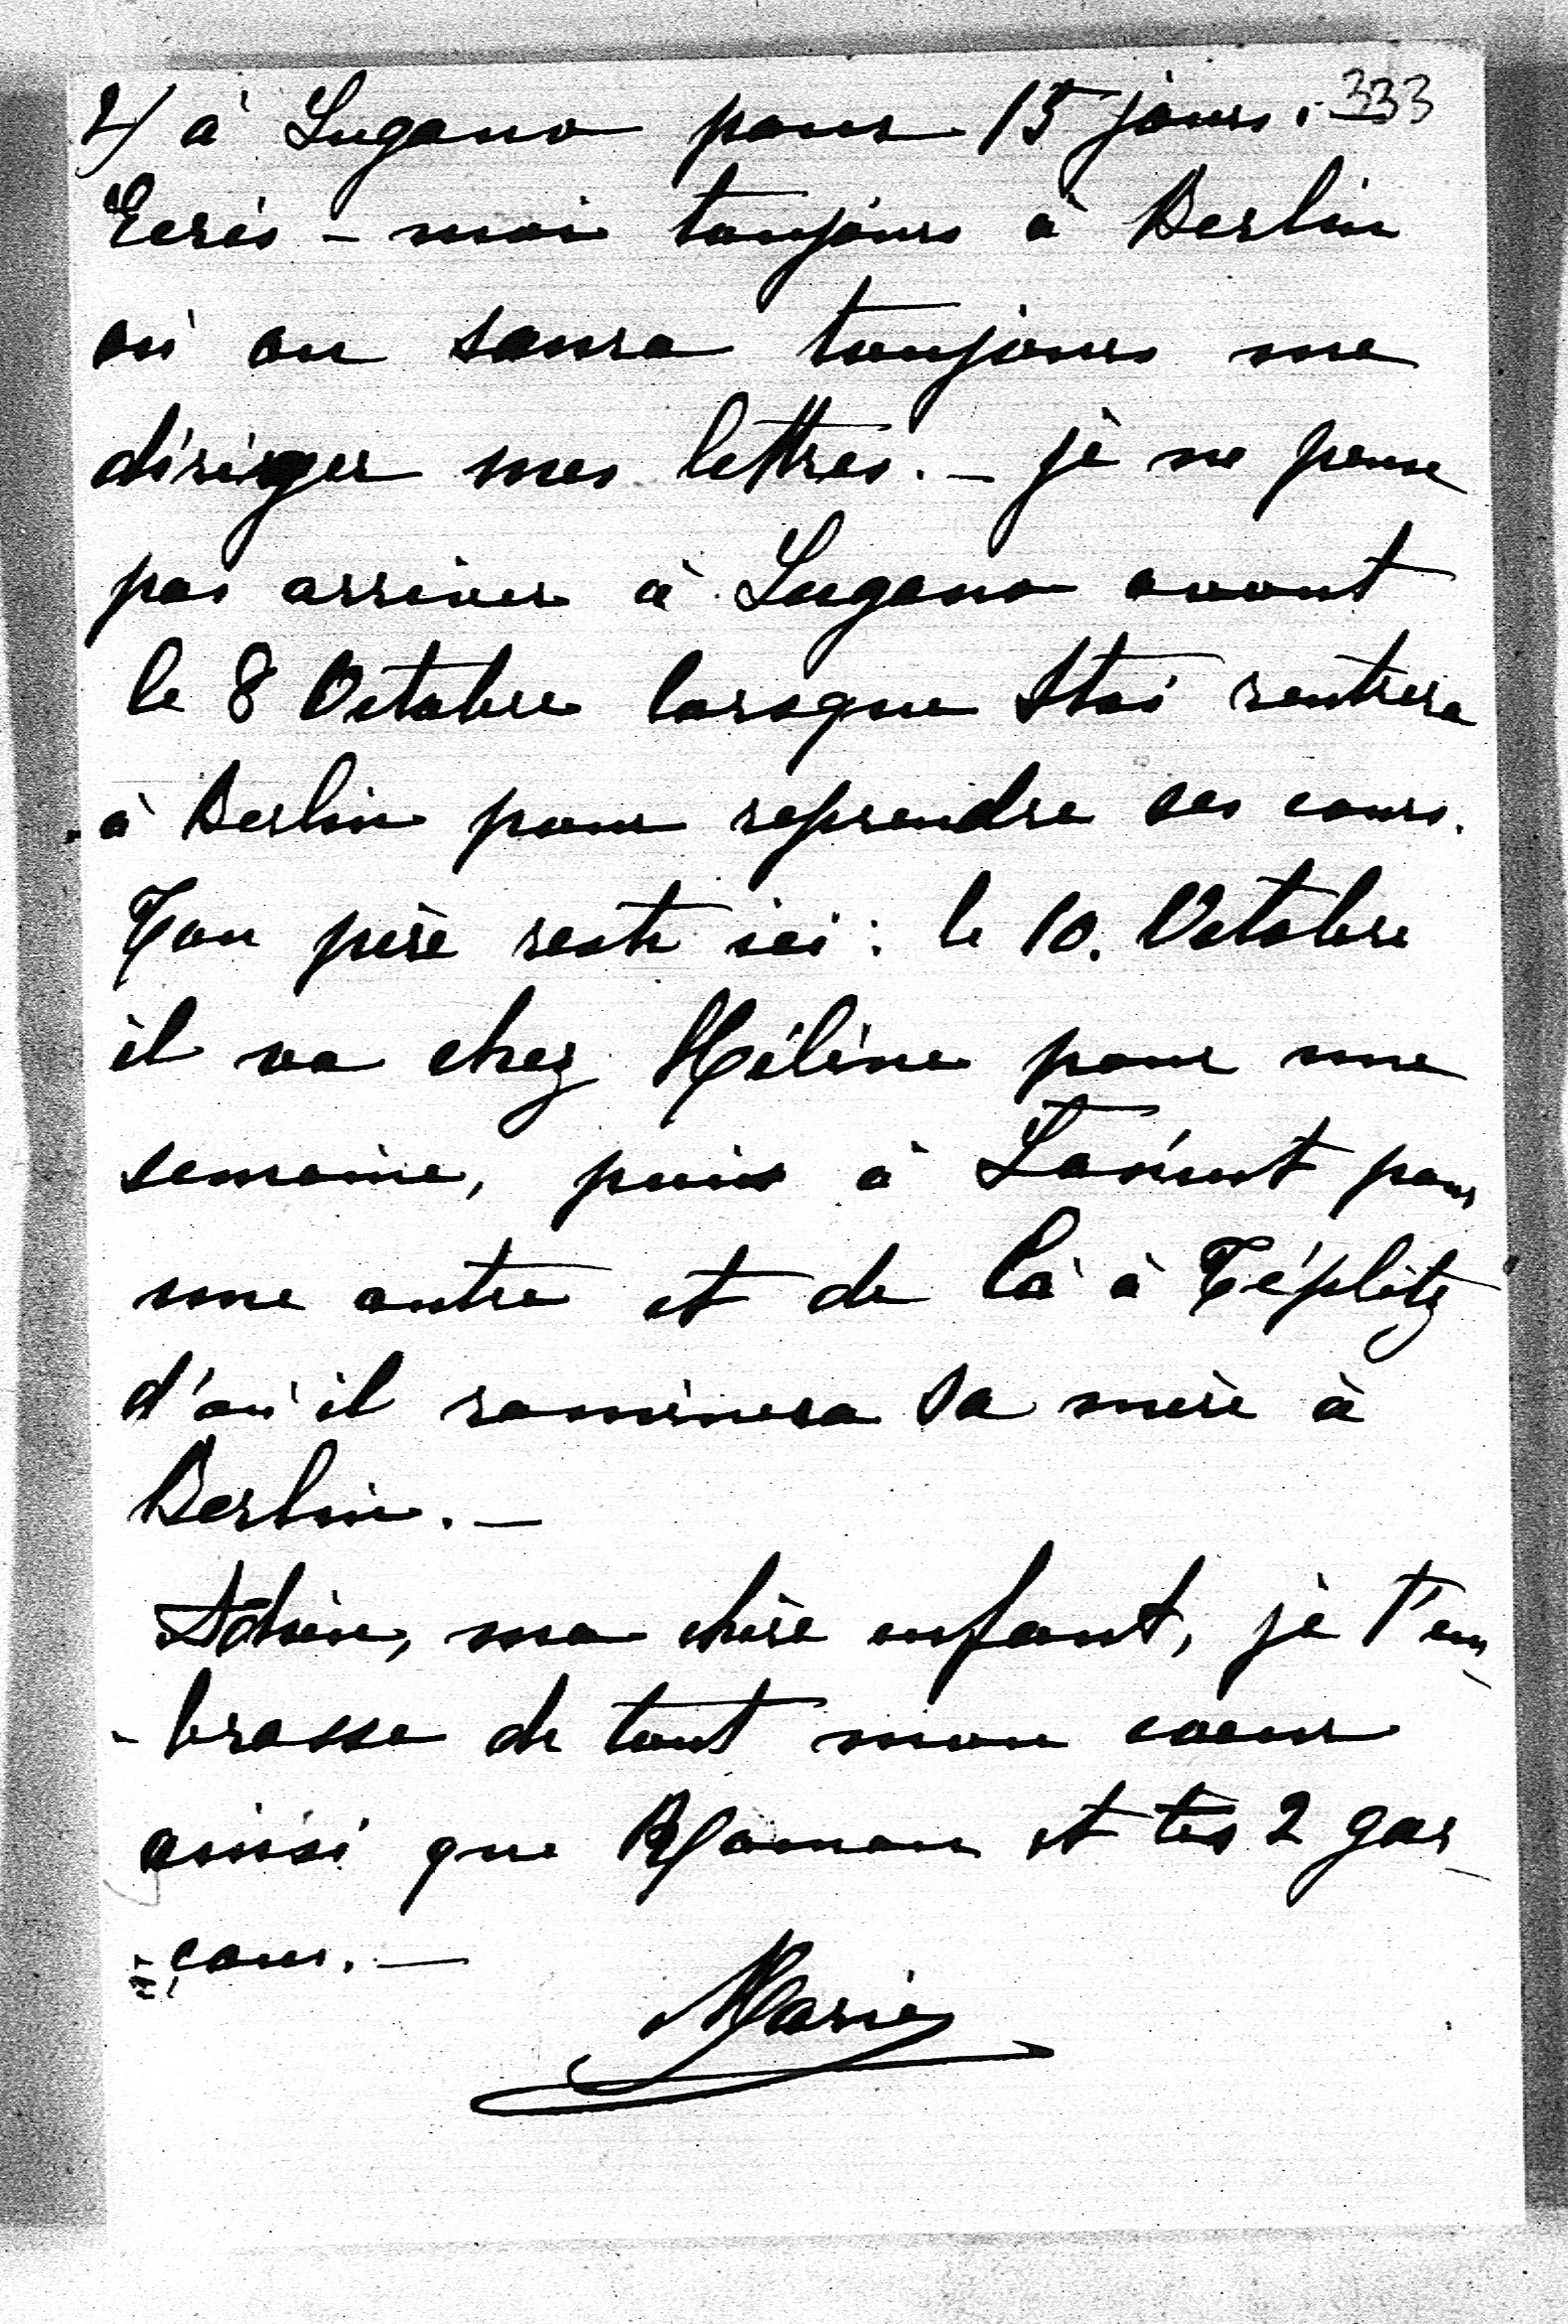 2/ à Lugano pour 15 jours. - 333
Ecris-moi toujours à Berlin
où on saura toujours me
diriger mes lettres. - je ne pense
pas arriver à Lugano avant
le 8 Octobre lorsque Stas rentrera
à Berlin pour reprendre ses cours.
Ton père reste ici: le 10. Octobre
il va chez Hélène pour une
semaine, puis à Łańcut pour
une autre et de là à Téplitz
d'où il ramènera sa mère à
Berlin. -
Adieu, ma chère enfant, je t'em
-brasse de tout mon coeur
ainsi que Maman et tes 2 gar
-çons. -
Marie